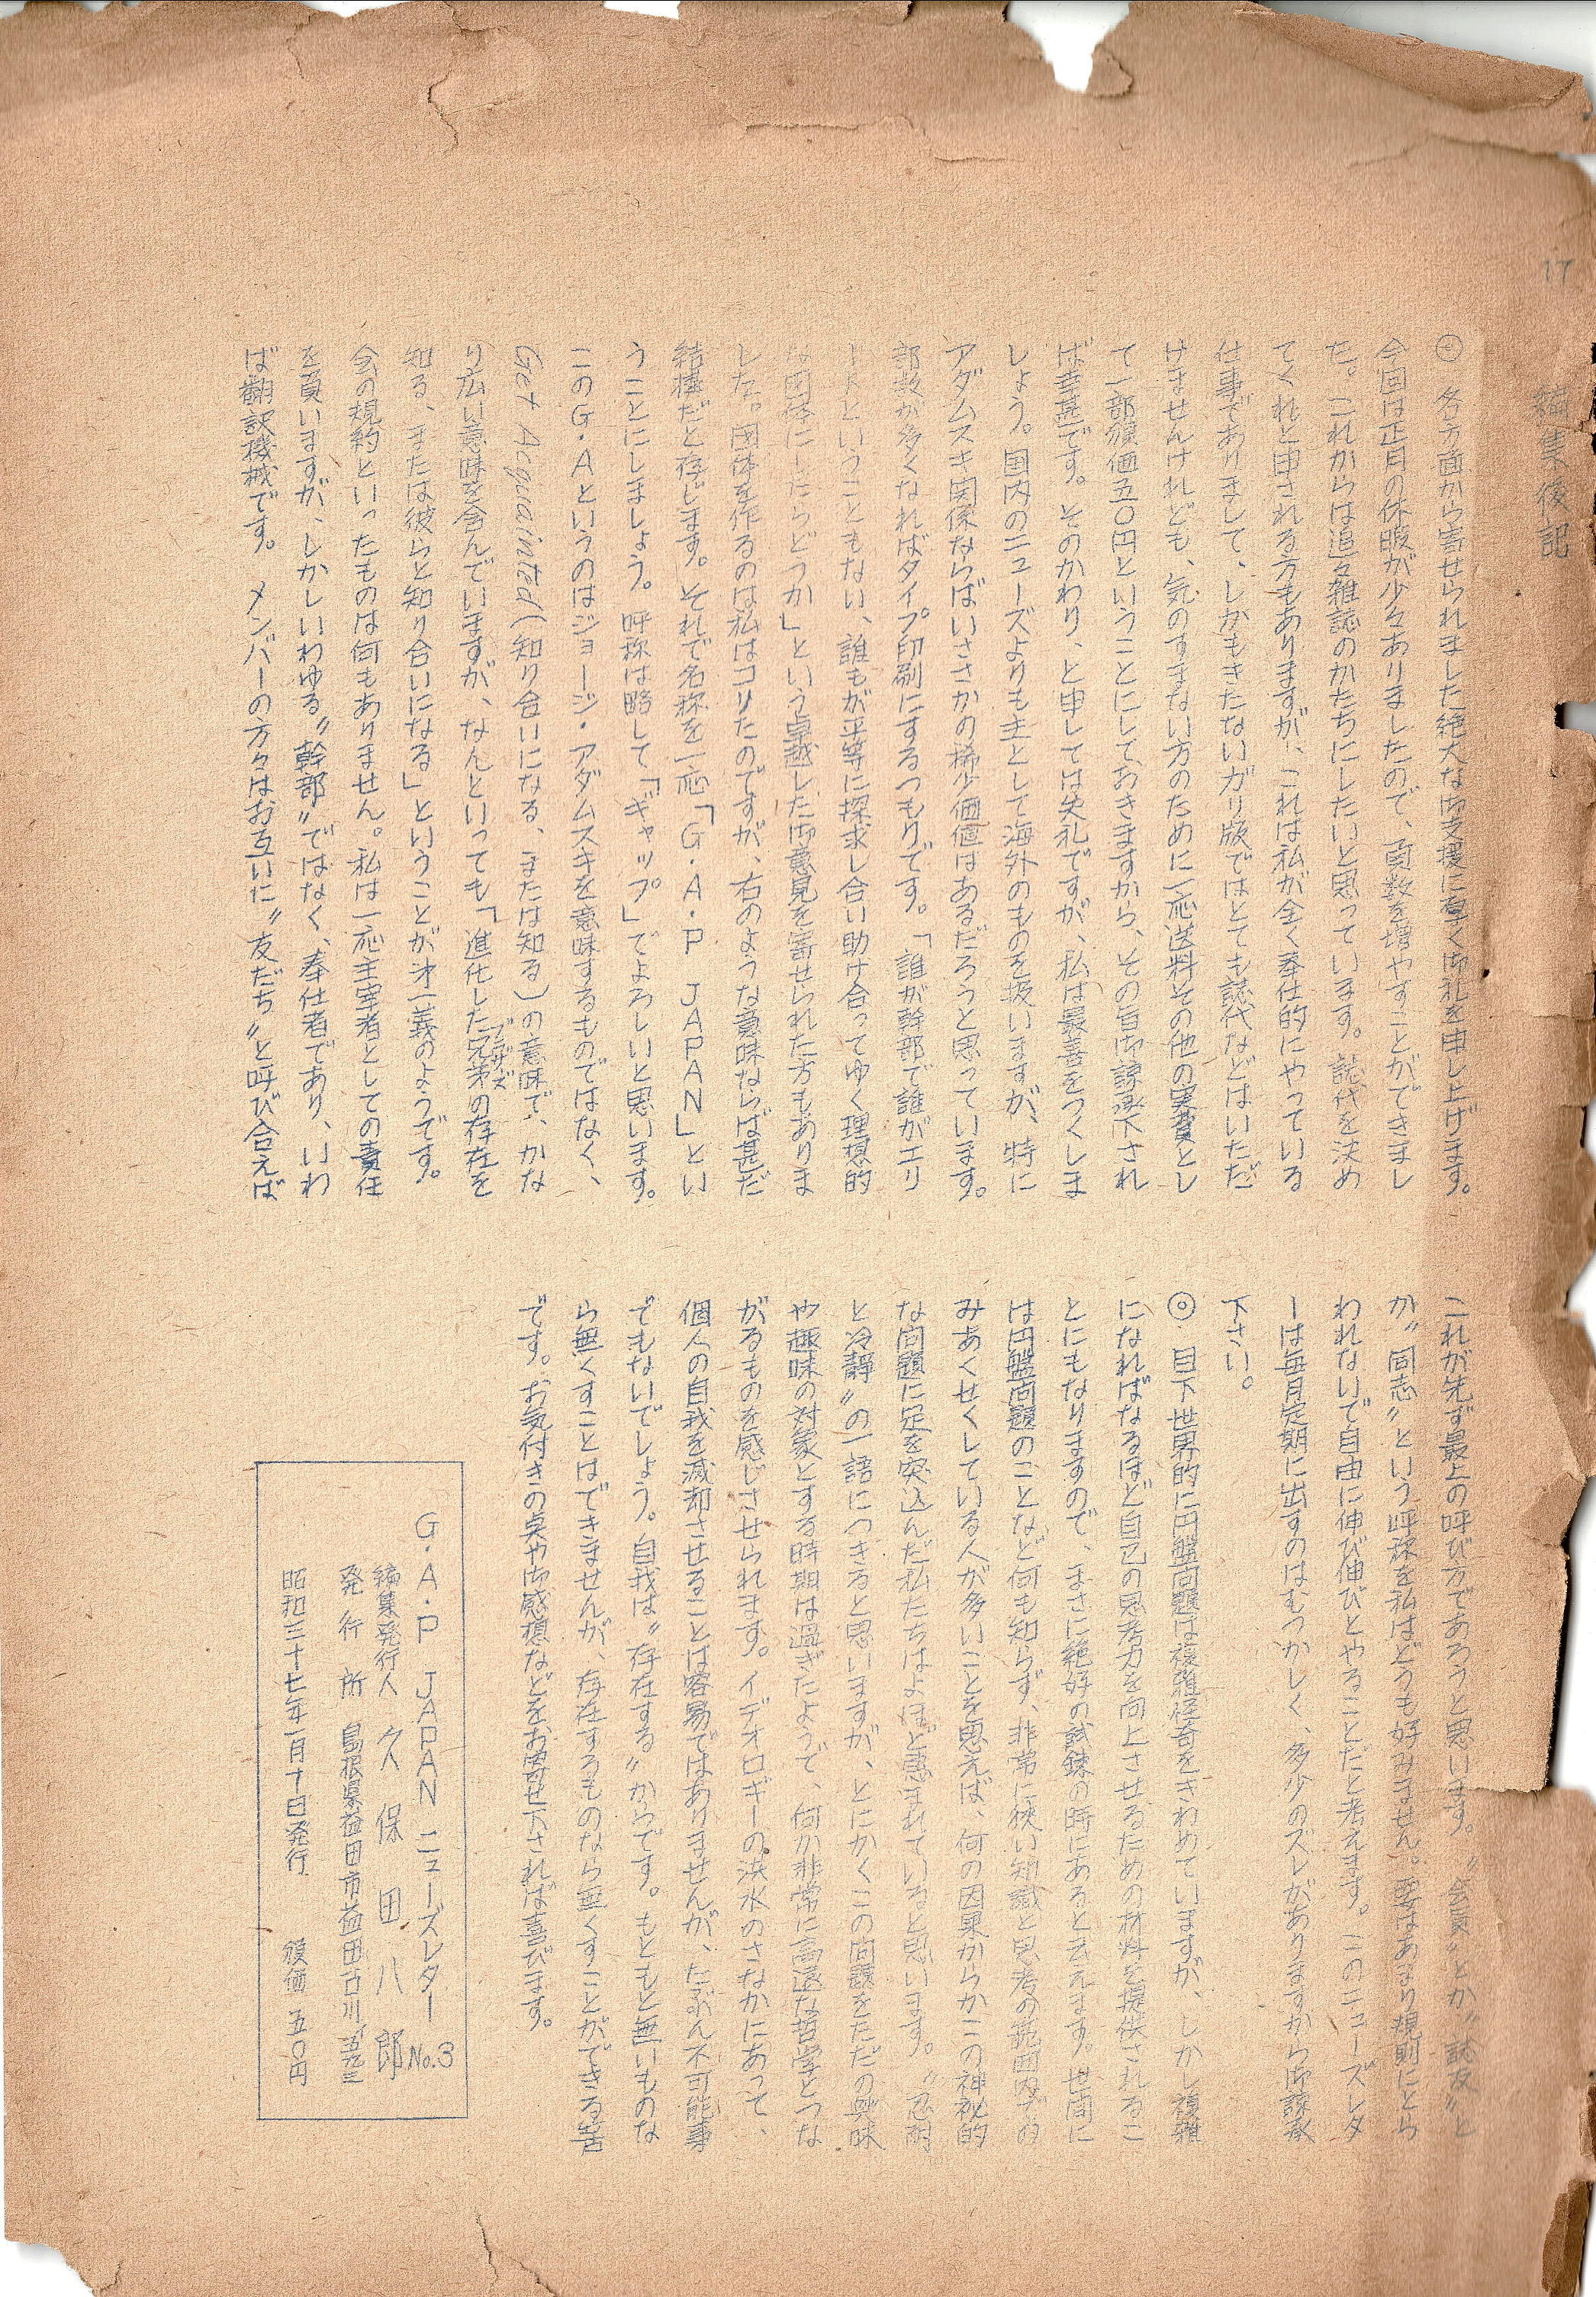 17
編集後記
◎ 各方面から寄せられました絶大な御支援に厚く御礼を申し上げます。
今回は正月の休暇が少々ありましたので、頁数を増やすことができまし
た。これからは追々雑誌のかたちにしたいと思っています。誌代を決め
てくれと申される方もありますが、これは私が全く奉仕的にやっている
仕事でありまして、しかもきたないガリ版ではとても誌代などはいただ
けませんけれども、気のすまない方のために一応送料その他の実費とし
て一部頒価五〇円ということにしておきますから、その旨御諒承下され
ば幸甚です。そのかわり、と申しては失礼ですが、私は最善をつくしま
しょう。国内のニューズよりも主として海外のものを扱いますが、特に
アダムスキ関係ならばいささかの稀少価値はあるだろうと思っています。
部数が多くなればタイプ印刷にするつもりです。「誰が幹部で誰がエリ
ートということもない、誰もが平等に探求し合い助け合ってゆく理想的
な団体にしたらどうか」という卓越した御意見を寄せられた方もありま
した。団体を作るのは私はコリたのですが、右のような意味ならば甚だ
結構だと存じます。それで名称を一応「G・A・P JAPAN」とい
うことにしましょう。呼称は略して「ギャップ」でよろしいと思います。
このG・Aというのはジョージ・アダムスキを意味するものではなく、
Get Acquainted(知り合いになる、または知る)の意味で、かな
り広い意味を含んでいますが、なんといっても「進化した兄弟ブラザーズの存在を
知る、または彼らと知り合いになる」ということが第一義のようです。
会の規約といったものは何もありません。私は一応主宰者としての責任
を負いますが、しかしいわゆる〝幹部〟ではなく、奉仕者であり、いわ
ば翻訳機械です。メンバーの方々はお互いに〝友だち〟と呼び合えば
これが先ず最上の呼び方であろうと思います。〝会員〟とか〝誌友〟と
か〝同志〟という呼称を私はどうも好みません。要はあまり規則にとら
われないで自由に伸び伸びとやることだと考えます。このニューズレタ
ーは毎月定期に出すのはむつかしく、多少のズレがありますから御諒承
下さい。
◎ 目下世界的に円盤問題は複雑怪奇をきわめていますが、しかし複雑
になればなるほど自己の思考力を向上させるための材料を提供されるこ
とにもなりますので、まさに絶好の試錬の時にあると云えます。世間に
は円盤問題のことなど何も知らず、非常に狭い知識と思考の範囲内での
みあくせくしている人が多いことを思えば、何の因果からかこの神秘的
な問題に足を突込んだ私たちはよほど恵まれていると思います。〝忍耐
と冷静〟の一語につきると思いますが、とにかくこの問題をただの興味
や趣味の対象とする時期は過ぎたようで、何か非常に高遠な哲学とつな
がるものを感じさせられます。イデオロギーの洪水のさなかにあって、
個人の自我を滅却させることは容易ではありませんが、たぶん不可能事
でもないでしょう。自我は〝存在する〟からです。もともと無いものな
ら無くすことはできませんが、存在するものなら無くすことができる筈
です。お気付きの点や御感想などをお寄せ下されば喜びます。
G・A・P JAPAN ニューズレター No.3
編集発行人 久保田八郎
発行所 島根県益田市益田古川
昭和三十七年一月十日発行 頒価 五〇円